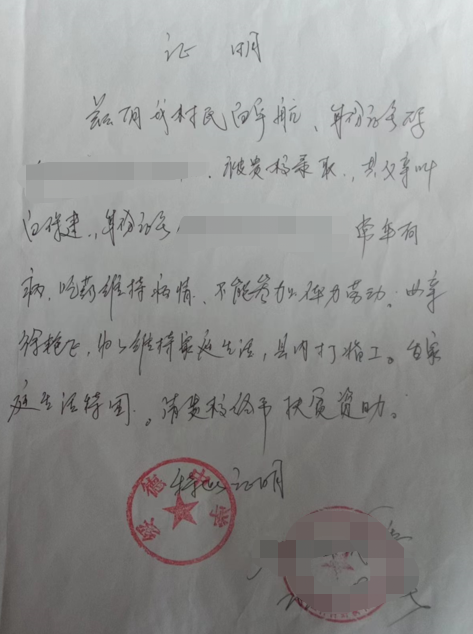 证 明
兹有我村民白宇航、身份证号码
、被贵校录取，其父亲叫
白保建，身份证号 常年有
病、吃药维持病情、不能参加体力劳动；母亲
徐艳飞，为了维持家庭生活，县内打临工。自家
庭生活特困。请贵校给予扶贫资助。
特此证明